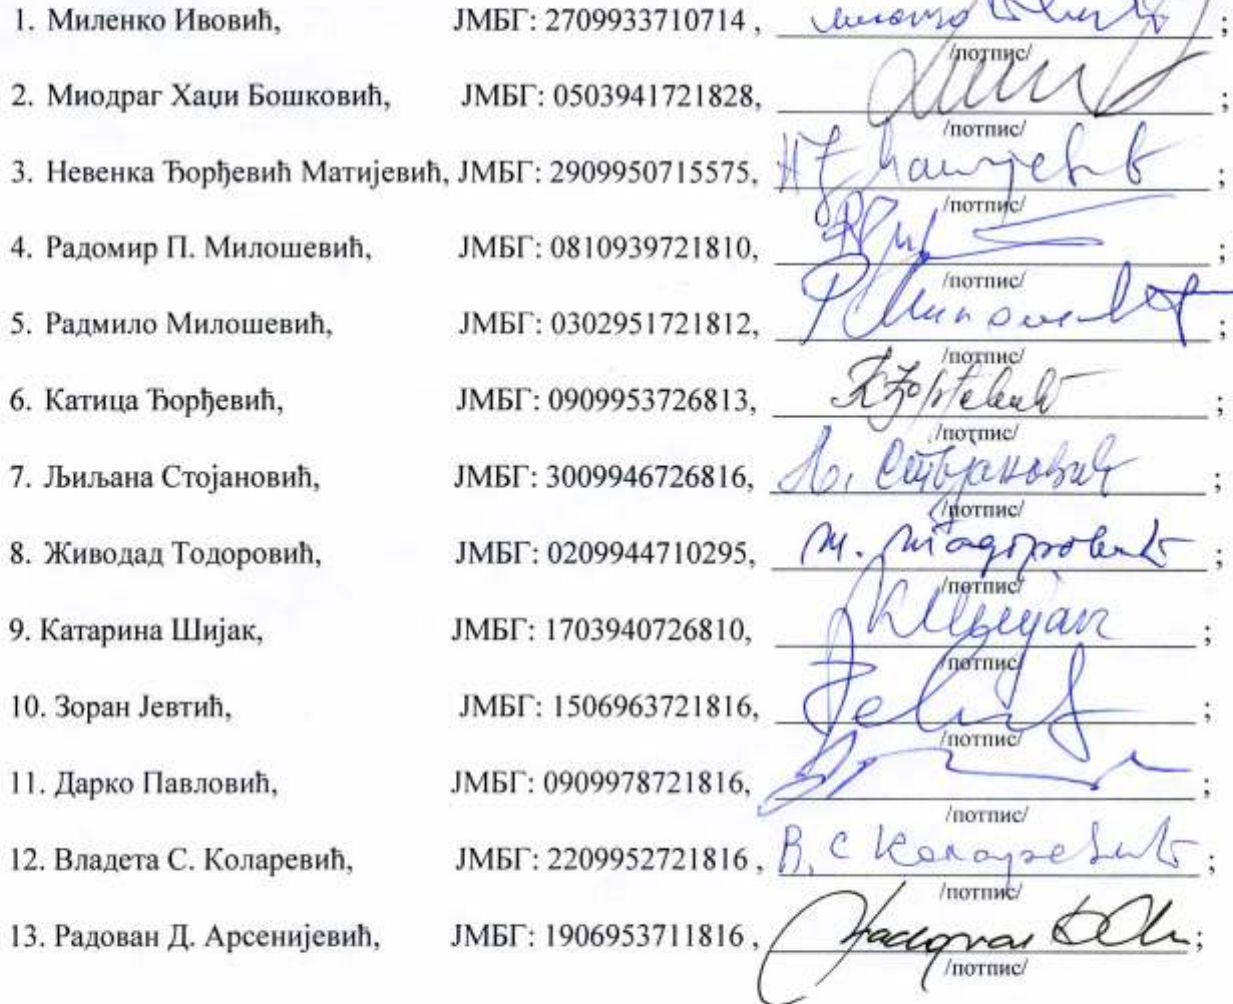 1. Миленко Ивовић, ЈМБГ: 2709933710714 , ;
/потпис/
2. Миодраг Хаџи Бошковић, ЈМБГ: 0503941721828, ;
/потпис/
3. Невенка Ђорђевић Матијевић, ЈМБГ: 2909950715575, ;
/потпис/
4. Радомир П. Милошевић, ЈМБГ: 0810939721810, ;
/потпис/
5. Радмило Милошевић, ЈМБГ: 0302951721812, ;
/потпис/
6. Катица Ђорђевић, ЈМБГ: 0909953726813, ;
/потпис/
7. Љиљана Стојановић, ЈМБГ: 3009946726816, ;
/потпис/
8. Живодад Тодоровић, ЈМБГ: 0209944710295, ;
/потпис/
9. Катарина Шијак, ЈМБГ: 1703940726810, ;
/потпис/
10. Зоран Јевтић, ЈМБГ: 1506963721816, ;
/потпис/
11. Дарко Павловић, ЈМБГ: 0909978721816, ;
/потпис/
12. Владета С. Коларевић, ЈМБГ: 2209952721816 , В. С Коларевић ;
/потпис/
13. Радован Д. Арсенијевић, ЈМБГ: 1906953711816 , ;
/потпис/